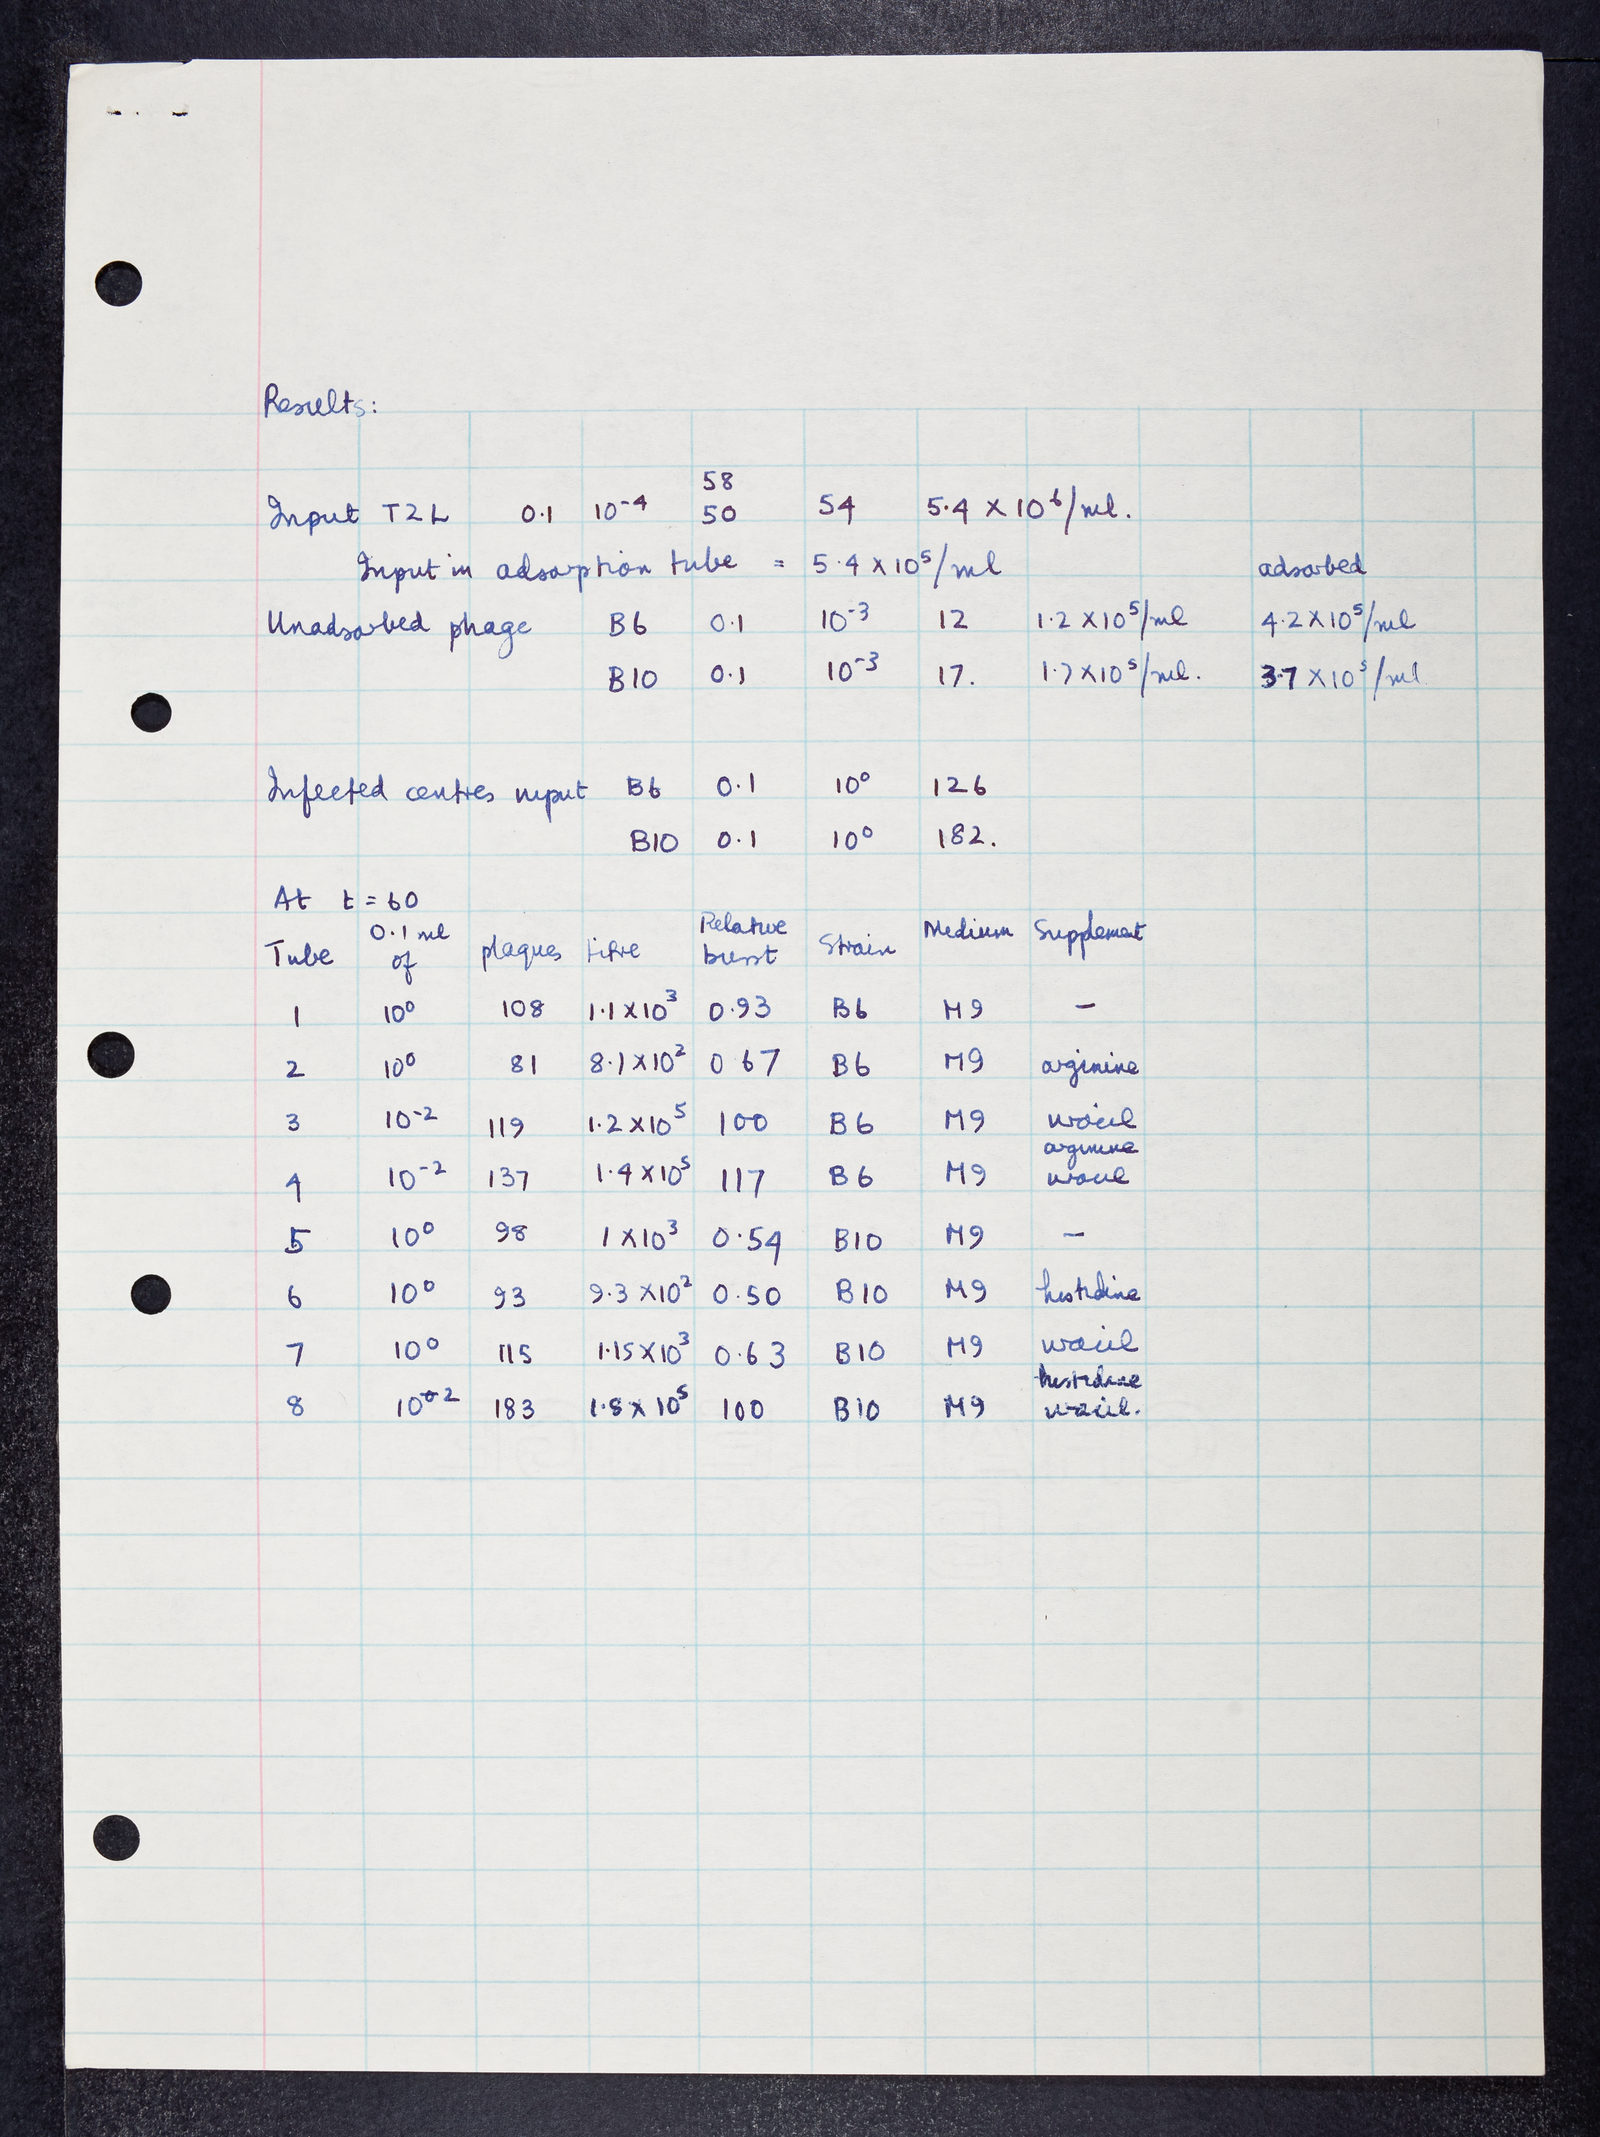 Results:
58
Input T2L 0.1 10⁻⁴ 50 54 5.4 × 10⁶/ml.
Input in adsorption tube = 5.4 × 10⁵/ml adsorbed
Unadsorbed phage B6 0.1 10⁻³ 12 1.2 × 10⁵/ml 4.2 × 10⁵/ml
B10 0.1 10⁻³ 17. 1.7 × 10⁵/ml. 3.7 × 10⁵/ml
Infected centres input B6 0.1 10⁰ 126
B10 0.1 10⁰ 182.
At t = 60
Tube 0.1 ml of plaques titre Relative burst Strain Medium Supplement
1 10⁰ 108 1.1 × 10³ 0.93 B6 M9 –
2 10⁰ 81 8.1 × 10² 0.67 B6 M9 arginine
3 10⁻² 119 1.2 × 10⁵ 100 B6 M9 uracil
4 10⁻² 137 1.4 × 10⁵ 117 B6 M9 arginine uracil
5 10⁰ 98 1 × 10³ 0.54 B10 M9 –
6 10⁰ 93 9.3 × 10² 0.50 B10 M9 histidine
7 10⁰ 115 1.15 × 10³ 0.63 B10 M9 uracil
8 10⁻² 183 1.8 × 10⁵ 100 B10 M9 histidine uracil.